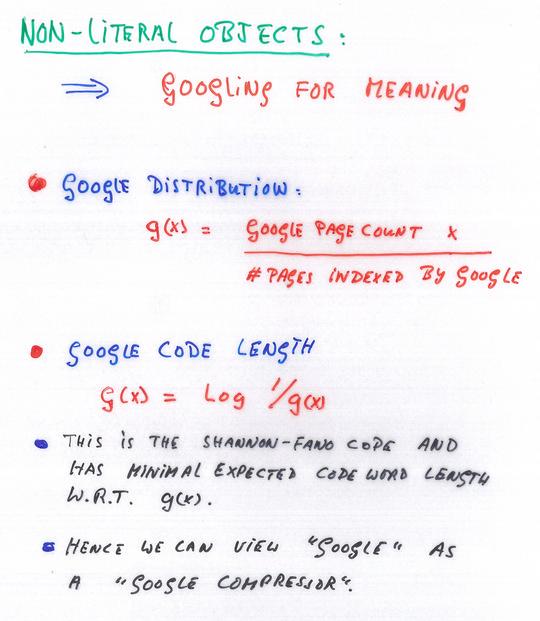 NON-LITERAL OBJECTS:
⇒ GOOGLING FOR MEANING
• GOOGLE DISTRIBUTION:
g(x) = GOOGLE PAGE COUNT x
# PAGES INDEXED BY GOOGLE
• GOOGLE CODE LENGTH
G(x) = LOG 1/g(x)
• THIS IS THE SHANNON-FANO CODE AND
HAS MINIMAL EXPECTED CODE WORD LENGTH
W.R.T. g(x).
• HENCE WE CAN VIEW "GOOGLE" AS
A "GOOGLE COMPRESSOR".